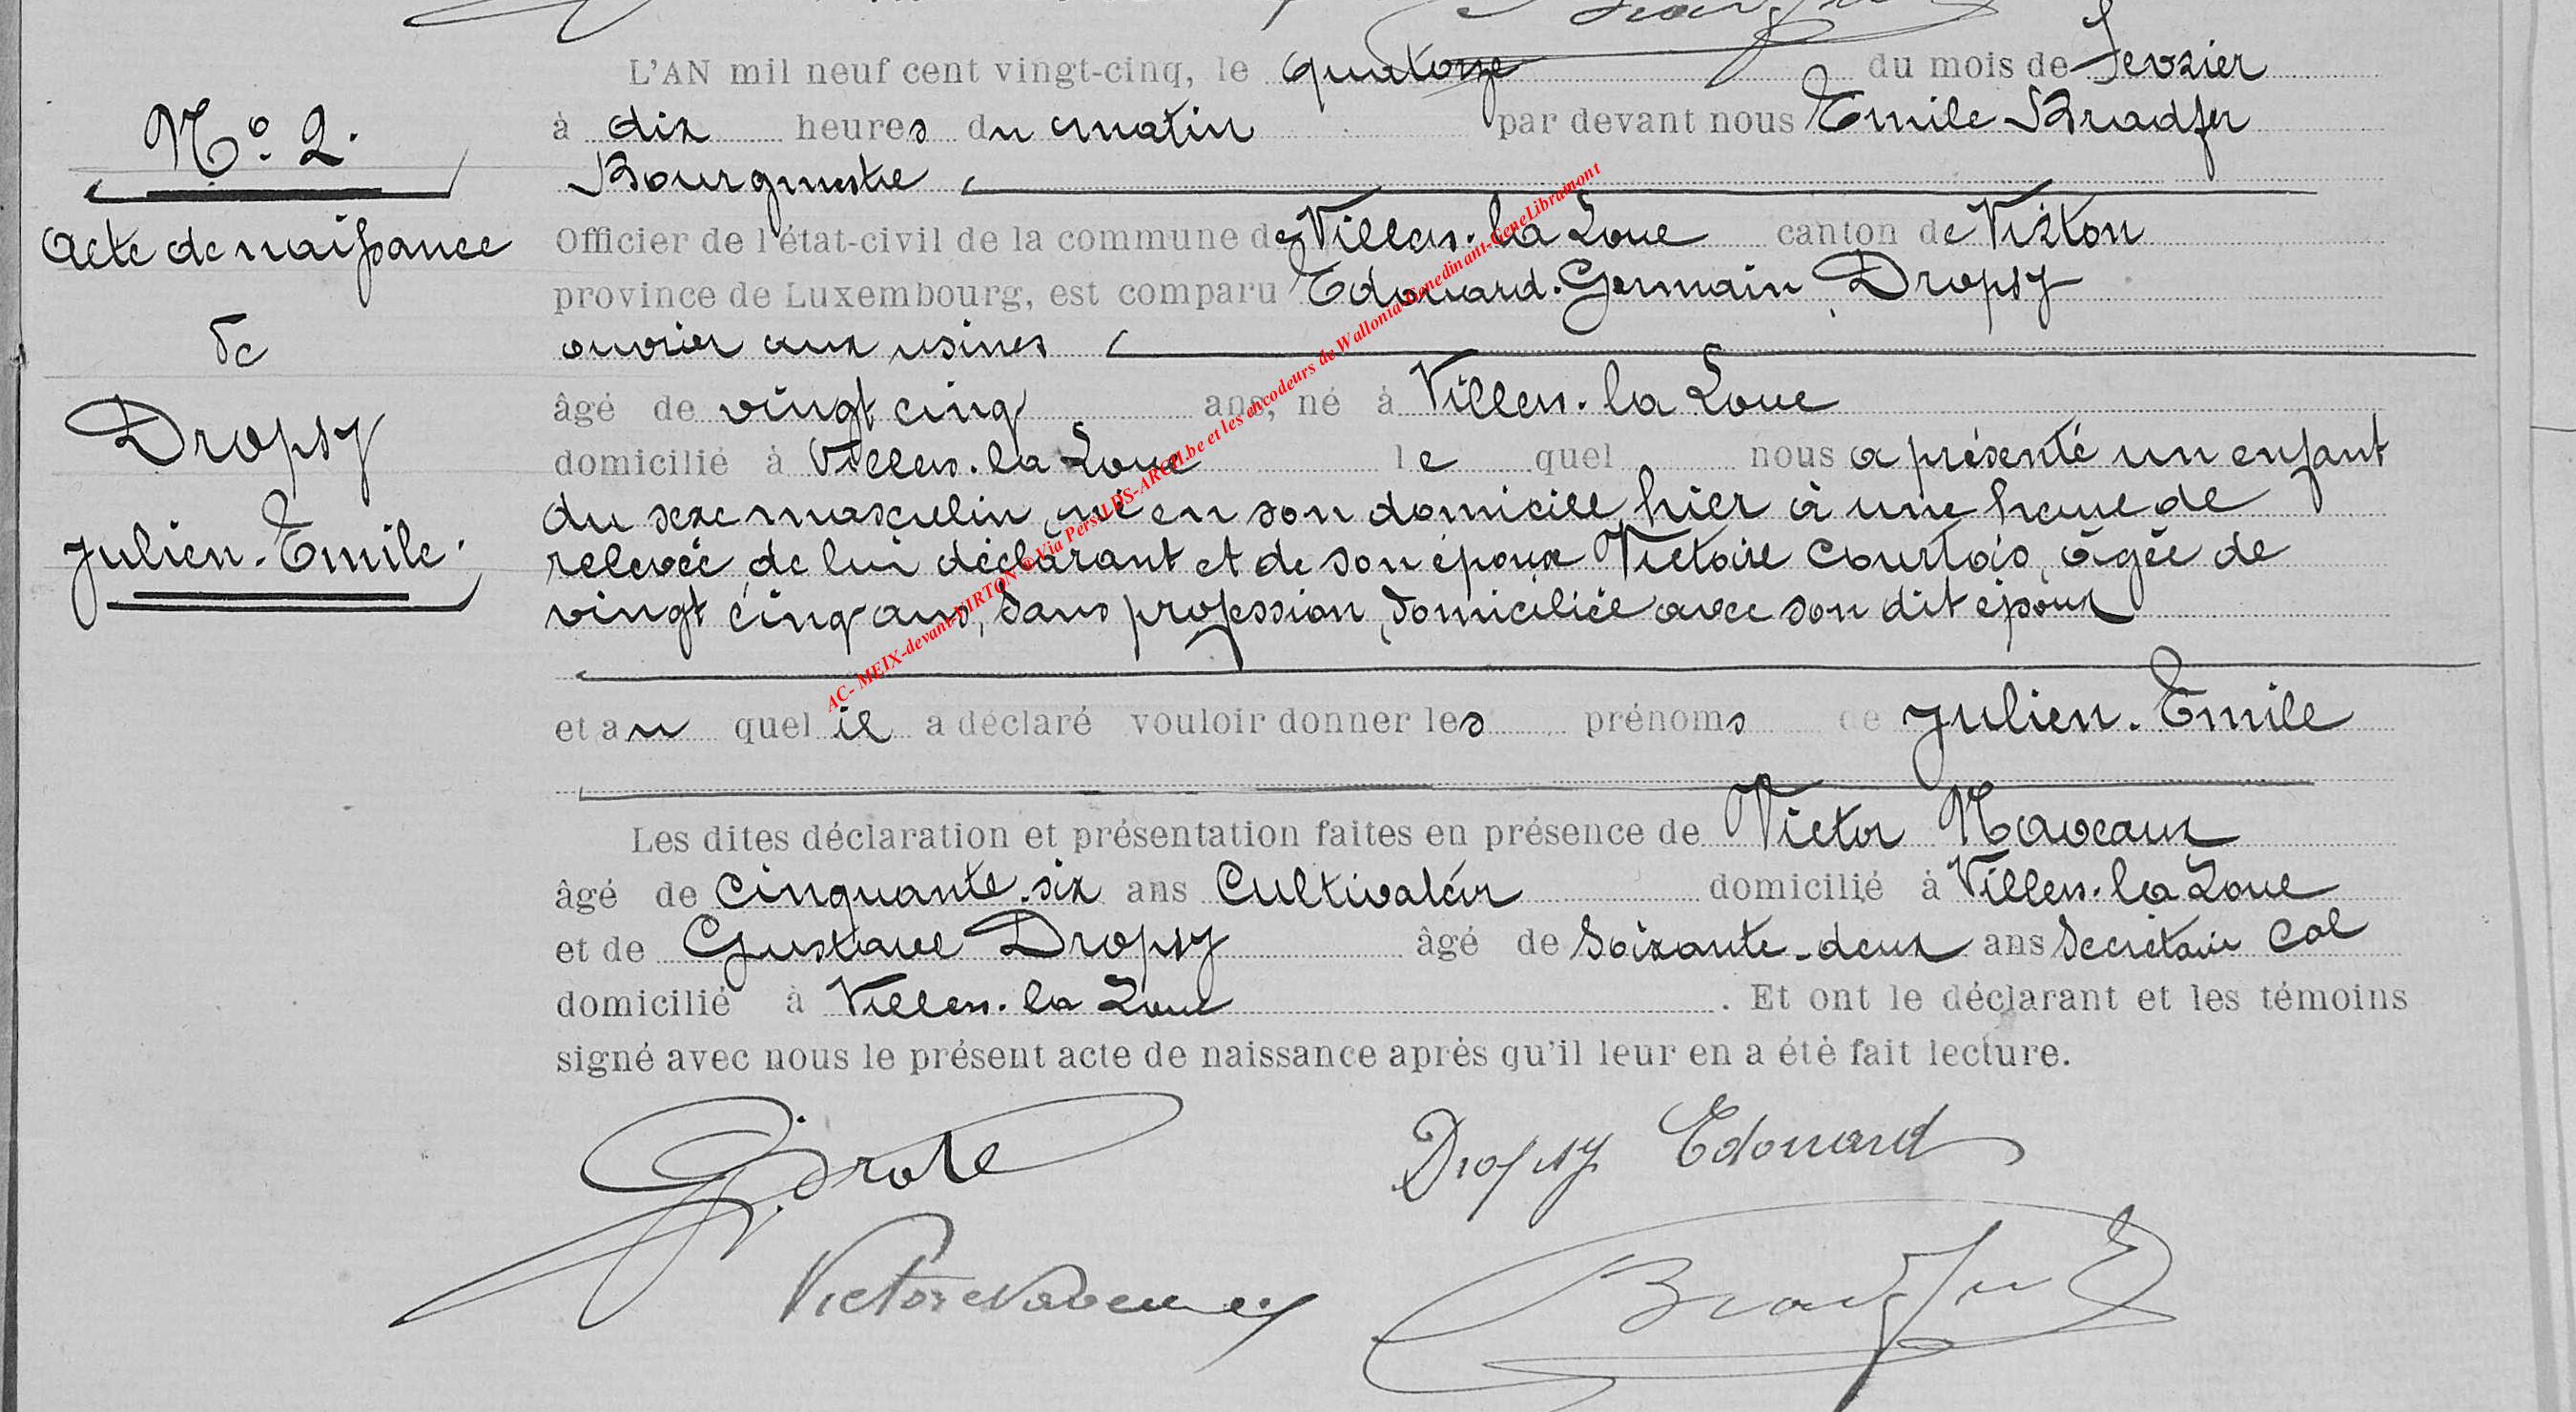 L'AN mil neuf cent vingt-cinq, le quatorze du mois de Fevrier
à dix heures du matin par devant nous Emile Bradfer
Bourgmestre
Officier de l'état-civil de la commune de Villers-la Loue canton de Virton
province de Luxembourg, est comparu Edouard-Germain, Dropsy
ouvrier aux usines
âgé de vingt cinq ans, né à Villers-la Loue
domicilié à Villers-la Loue le quel nous a présenté un enfant
du sexe masculin, né en son domicile hier à une heure de
relevée de lui déclarant et de son épouse Victoire Courtois, âgée de
vingt cinq ans, sans profession, domiciliée avec son dit époux
et au quel il a déclaré vouloir donner les prénoms de Julien-Emile
Les dites déclaration et présentation faites en présence de Victor Naveaux
âgé de cinquante-six ans Cultivateur domicilié à Villers-la Loue
et de Gustave Dropsy âgé de soixante-deux ans Secrétaire Cal
domicilié à Villers-la Loue . Et ont le déclarant et les témoins
signé avec nous le présent acte de naissance après qu'il leur en a été fait lecture.
N° 2.
Acte de naissance
de
Dropsy
Julien-Emile.
Dropsy Edouard
Victor Naveaux
Bradfer
AC- MEIX-devant-VIRTON © Via PersILDS-ARCH.be et les encodeurs de Wallonia-Genedinant-GeneLibramont